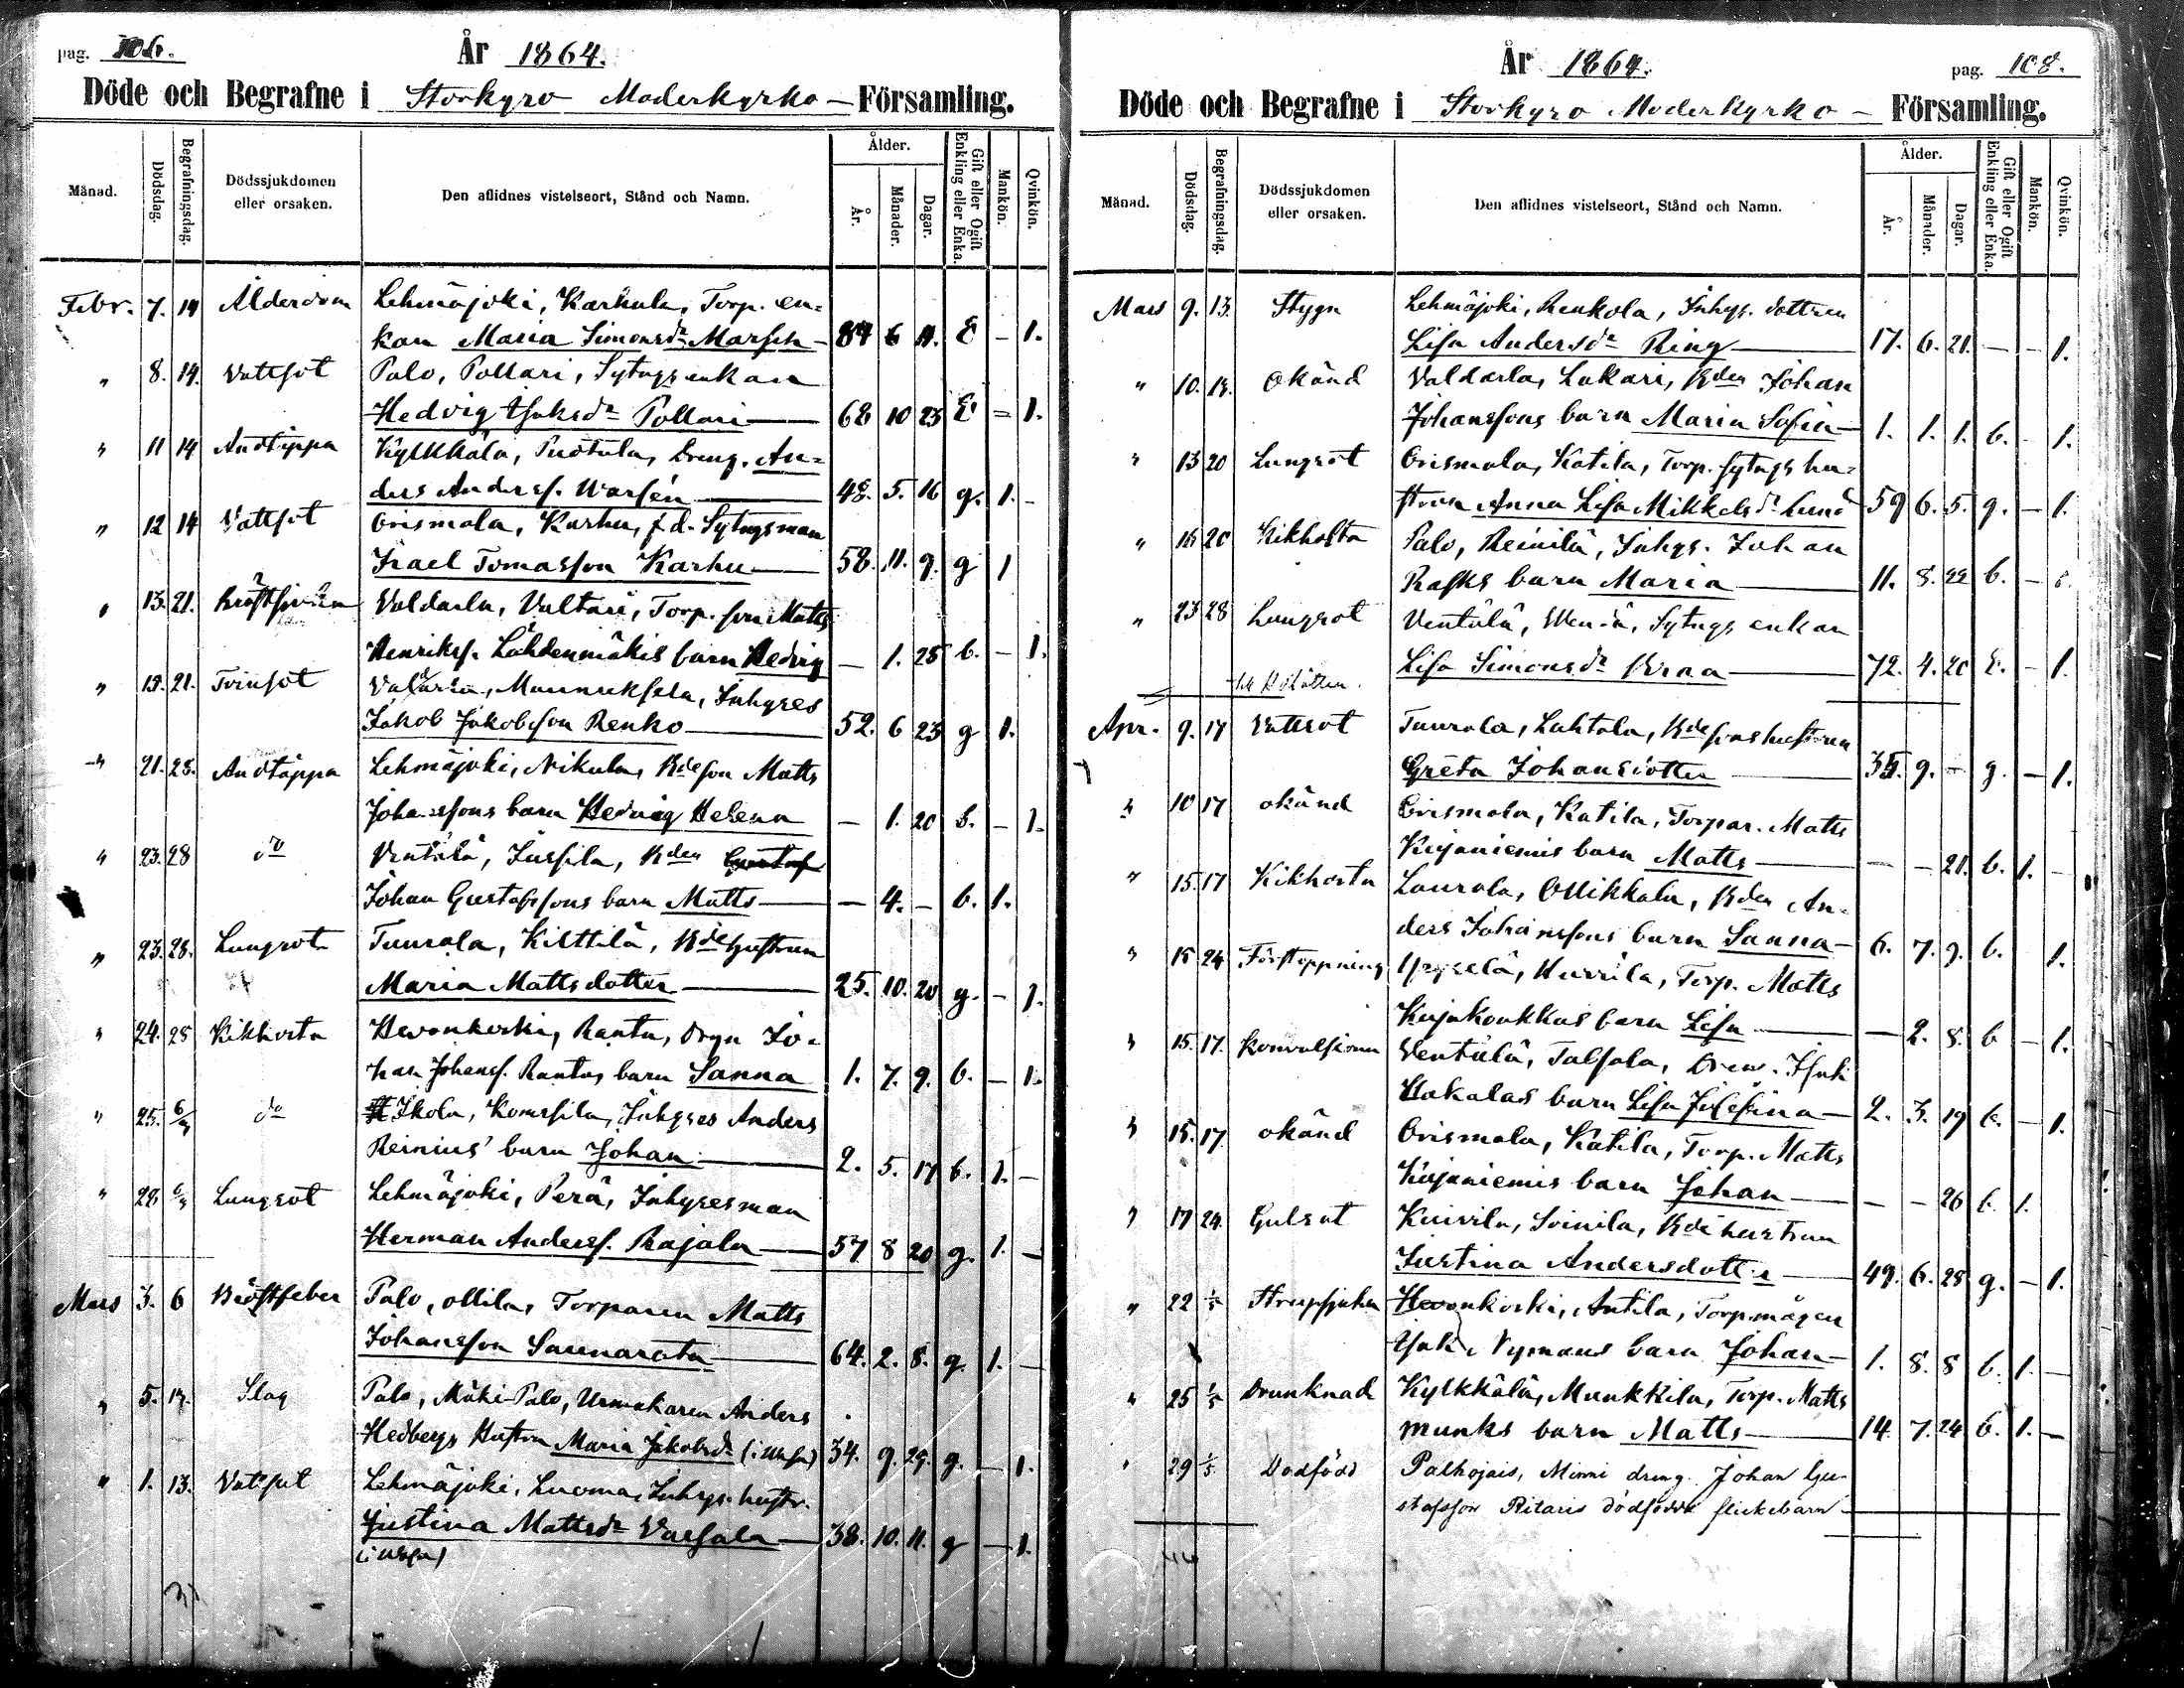 pag. 106.
År 1864.
Döde och Begrafne i Storkyro Moderkyrko- Församling.
Månad. Dödsdag. Begrafningsdag. Dödssjukdomen eller orsaken. Den aflidnes vistelseort, Stånd och Namn. Ålder. År. Månader. Dagar. Gift eller Ogift Enkling eller Enka. Mankön. Qvinkön.
Febr. 7. 14 Ålderdom Lehmäjoki, Karhula, Torp. en=
kan Maria Simonsdr Marsch 84 6 11. E – 1.
" 8. 14. Vattsot Palo, Pollari, Sytngsenkan
Hedvig Isaksdr Pollari 68 10 23 E – 1.
" 11 14 Andtäppa Kylkkälä, Puotula, Dreng. An=
ders Andersf. Warsén 48. 5. 16 g. 1. -
" 12 14 Vattsot Orismala, Karhu, f.d. Sytngsman
Israel Tomasson Karhu 58. 11. 9. g 1
" 13. 21. Valdarla, Valtari, Torp. son Matts
Henriksf. Lähdenmäkis barn Hedvig — 1. 25 b. – 1.
" 15. 21. Tvinsot Valdarla, Maunuksela, Inhyses
Jakob Jakobsson Renko 52. 6 23 g 1.
" 21. 28. Andtäppa Lehmäjoki, Nikula, Bdeson Matts
Johanssons barn Hedvig Helena — 1. 20 b. – 1.
" 23. 28 do Ventälä, Jussila, Bden Gustaf
Johan Gustafssons barn Matts — 4. – b. 1.
" 23. 28. Lungsot Tuurala, Kilttilä, Bdehustrun
Maria Mattsdotter 25. 10. 20 g. – 1.
" 24. 28 Kikhosta Hevonkoski, Ranta, Drgn Jo=
han Johansf. Rantas barn Sanna 1. 7. 9. b. – 1.
" 25. 6/3 do Ikola, Komsila, Inhyses Anders
Reinius' barn Johan 2. 5. 17 b. 1. –
" 28 6/3 Lungsot Lehmäjoki, Perä, Inhysesman
Herman Andersf. Rajala 57 8 20 g. 1. –
Mars 3. 6 Bröstfeber Palo, Ollila, Torparen Matts
Johansson Saunaranta 64. 2. 8. g. 1. –
" 5. 13. Slag Palo, Mäki-Palo, Urmakaren Anders
Hedbergs hustru Maria Jakobsdr (i Wasa) 34. 9. 29. g. – 1.
" 1. 13. Vatsot Lehmäjoki, Luoma, Inhys. hustr.
Justina Mattsdr Varsala 38. 10. 11. g – 1.
(i Wasa)
År 1864. pag. 108.
Döde och Begrafne i Storkyro Moderkyrko - Församling.
Månad. Dödsdag. Begrafningsdag. Dödssjukdomen eller orsaken. Den aflidnes vistelseort, Stånd och Namn. Ålder. År. Månader. Dagar. Gift eller Ogift Enkling eller Enka. Mankön. Qvinkön.
Mars 9. 13. Stygn Lehmäjoki, Renkola, Inhys. dottren
Lisa Andersdr Ring 17. 6. 21. — – 1.
" 10. 13. Okänd Valdarla, Lukari, Bden Johan
Johanssons barn Maria Sofia 1. 1. 1. b. - 1.
" 13 20 Lungsot Orismala, Katila, Torp. sytngs hu=
strun Anna Lisa Mikkelsdr Lund 59 6. 5. g. – 1.
" 16 20 Kikhosta Palo, Reinilä, Inhys. Johan
Rasks barn Maria 11. 8. 22 b. –
" 23 28 Lungsot Ventälä, Sytngs enkan
Lisa Simonsdr Braa 72. 4. 20 E. – 1.
Apr. 9. 17 Vattsot Tuurala, Lahtala, Bdesonshustrun
Greta Johansdotter 35. 9. – g. – 1.
" 10 17 okänd Orismala, Katila, Torpar. Matts
Kujaniemis barn Matts — – 21. b. 1. –
" 15. 17 Kikhosta Laurola, Ollikkala, Bden An=
ders Johanssons barn Sanna 6. 7. 9. b. 1.
" 15 24 Förstoppning Yryselä, Hurrila, Torp. Matts
Kujakoukkus barn Lisa — 2. 8. b – 1.
" 15. 17. Konvulsioner Ventälä, Talsala, Dren. Isak
Hakalas barn Lisa Josefina 2. 3. 19 b. – 1.
" 15. 17. okänd Orismala, Katila, Torp. Matts
Kujaniemis barn Johan — – 26 b. 1.
" 17 24. Gulsot Kuivila, Soinila, Bdehustrun
Justina Andersdotter 49. 6. 28 g. – 1.
" 22 1/5 Strupsjukan Hevonkoski, Antila, Torp.mågen
Isak Nymans barn Johan 1. 8. 8 b. 1. –
" 25 1/5 Drunknad Kylkkälä, Munkkila, Torp. Matts
Munks barn Matts 14. 7. 24 b. 1. –
" 29 1/5 Dödföd Palhojais, Minni dreng. Johan Gu-
stafsson Ritaris dödfödde flickebarn